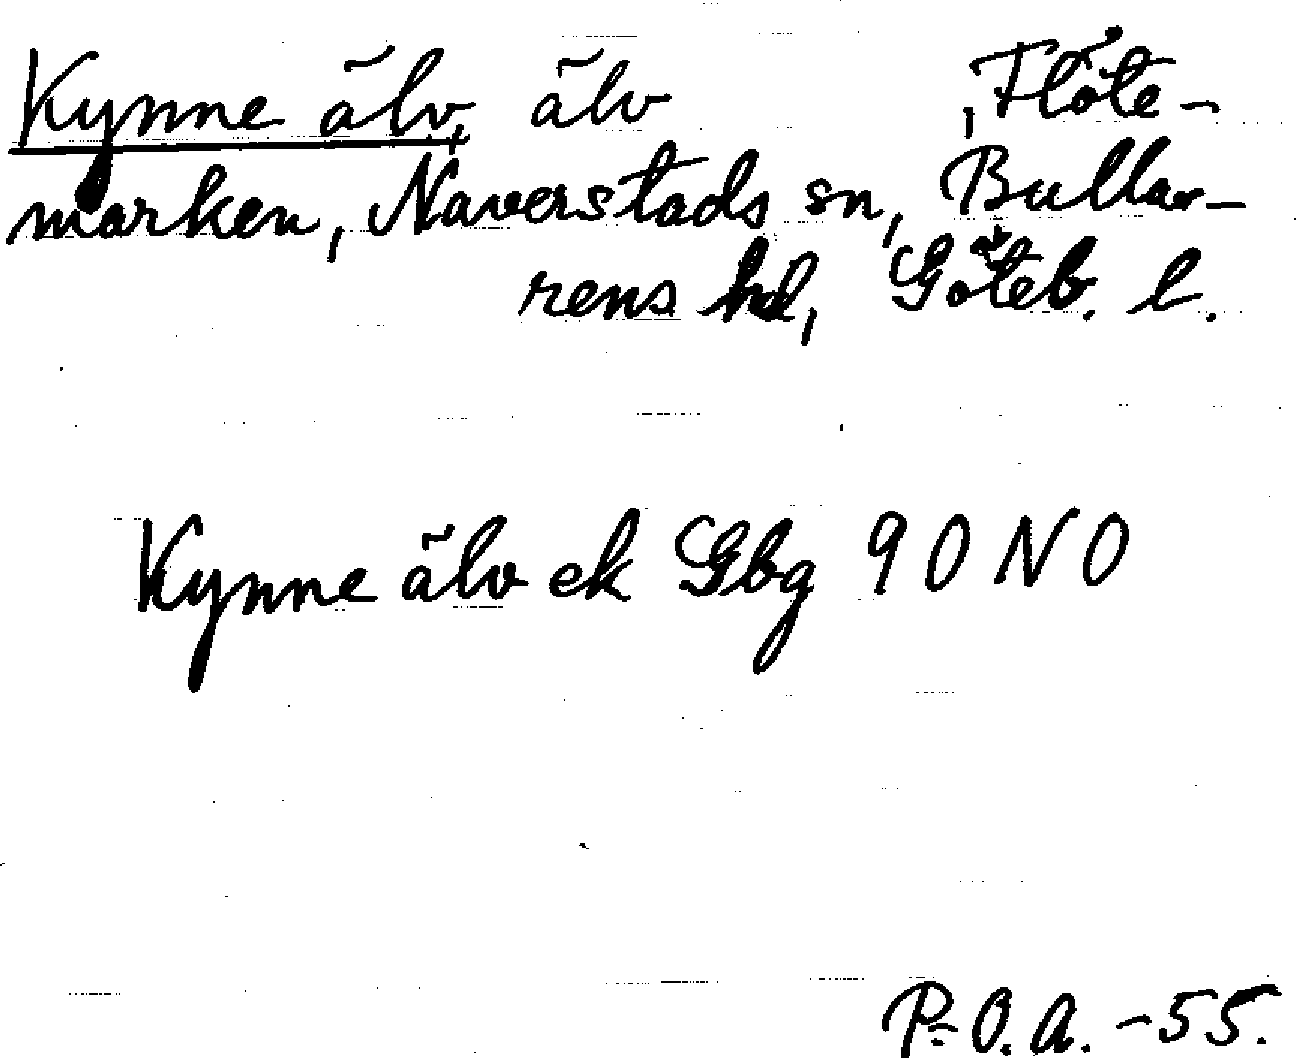 Kynne älv, älv , Flöte-
marken, Naverstads sn, Bulla-
rens hd, Göteb. l.
Kynne älv ek Gbg 90 NO
P.O.A. -55.